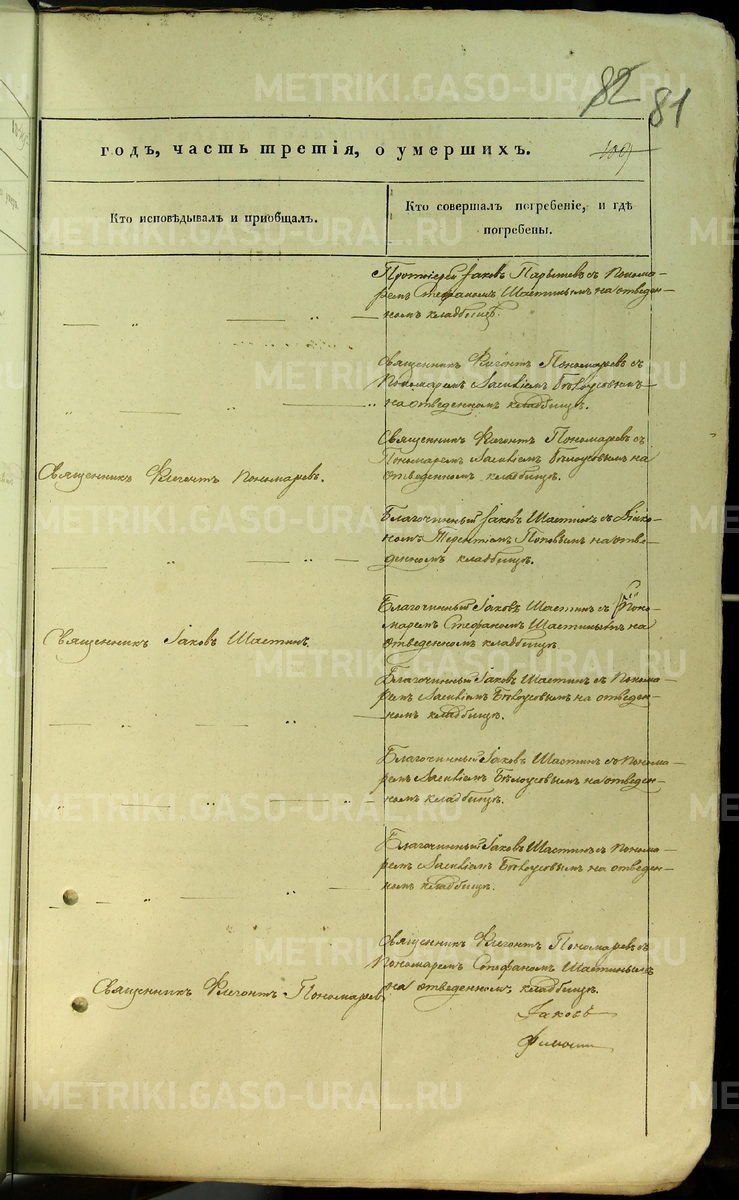 82 81
годъ, часть третія, о умершихъ.
109
Кто исповѣдывалъ и пріобщалъ.
Кто совершалъ погребеніе, и гдѣ
погребены.
Протоіерей Іаковъ Парышевъ съ Понома-
ремъ Стефаномъ Шастинымъ на отведен-
номъ кладбищѣ.
Священникъ Флегонтъ Пономаревъ съ
Пономаремъ Бѣлоусовымъ
на отведенномъ кладбищѣ.
Священникъ Флегонтъ Пономаревъ.
Священникъ Флегонтъ Пономаревъ съ
Пономаремъ Бѣлоусовымъ на
отведенномъ кладбищѣ.
Благочинный Іаковъ Шастинъ съ Діако-
номъ Терентіемъ Поповымъ на отве-
денномъ кладбищѣ.
Священникъ Іаковъ Шастинъ.
Благочинный Іаковъ Шастинъ съ Поно-
маремъ Стефаномъ Шастинымъ на
отведенномъ кладбищѣ.
Благочинный Іаковъ Шастинъ съ Понома-
ремъ Бѣлоусовымъ на отведен-
номъ кладбищѣ.
Благочинный Іаковъ Шастинъ съ Понома-
ремъ Бѣлоусовымъ на отведен-
номъ кладбищѣ.
Благочинный Іаковъ Шастинъ съ Понома-
ремъ Бѣлоусовымъ на отведен-
номъ кладбищѣ.
Священникъ Флегонтъ Пономаревъ
Священникъ Флегонтъ Пономаревъ съ
Пономаремъ Стефаномъ Шастинымъ
на отведенномъ кладбищѣ.
Іаковъ
METRIKI.GASO-URAL.RU